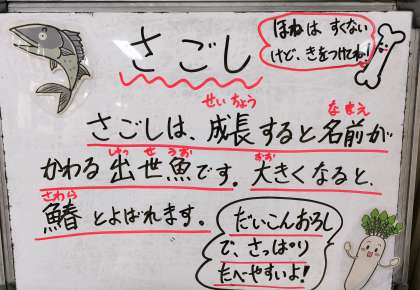 さごし
ほねは すくない
けど、きをつけてね!
せいちょう なまえ
さごしは、成長すると名前が
しゅっ せ うお おお
かわる 出世魚です。大きくなると、
さわら
鰆 とよばれます。
だいこんおろし
で、さっぱり
たべやすいよ!